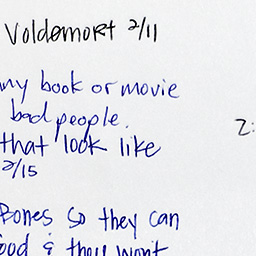 Voldemort 2/11
any book or movie
bad people.
that look like
2/15
Bones so they can
food & they won't
2: